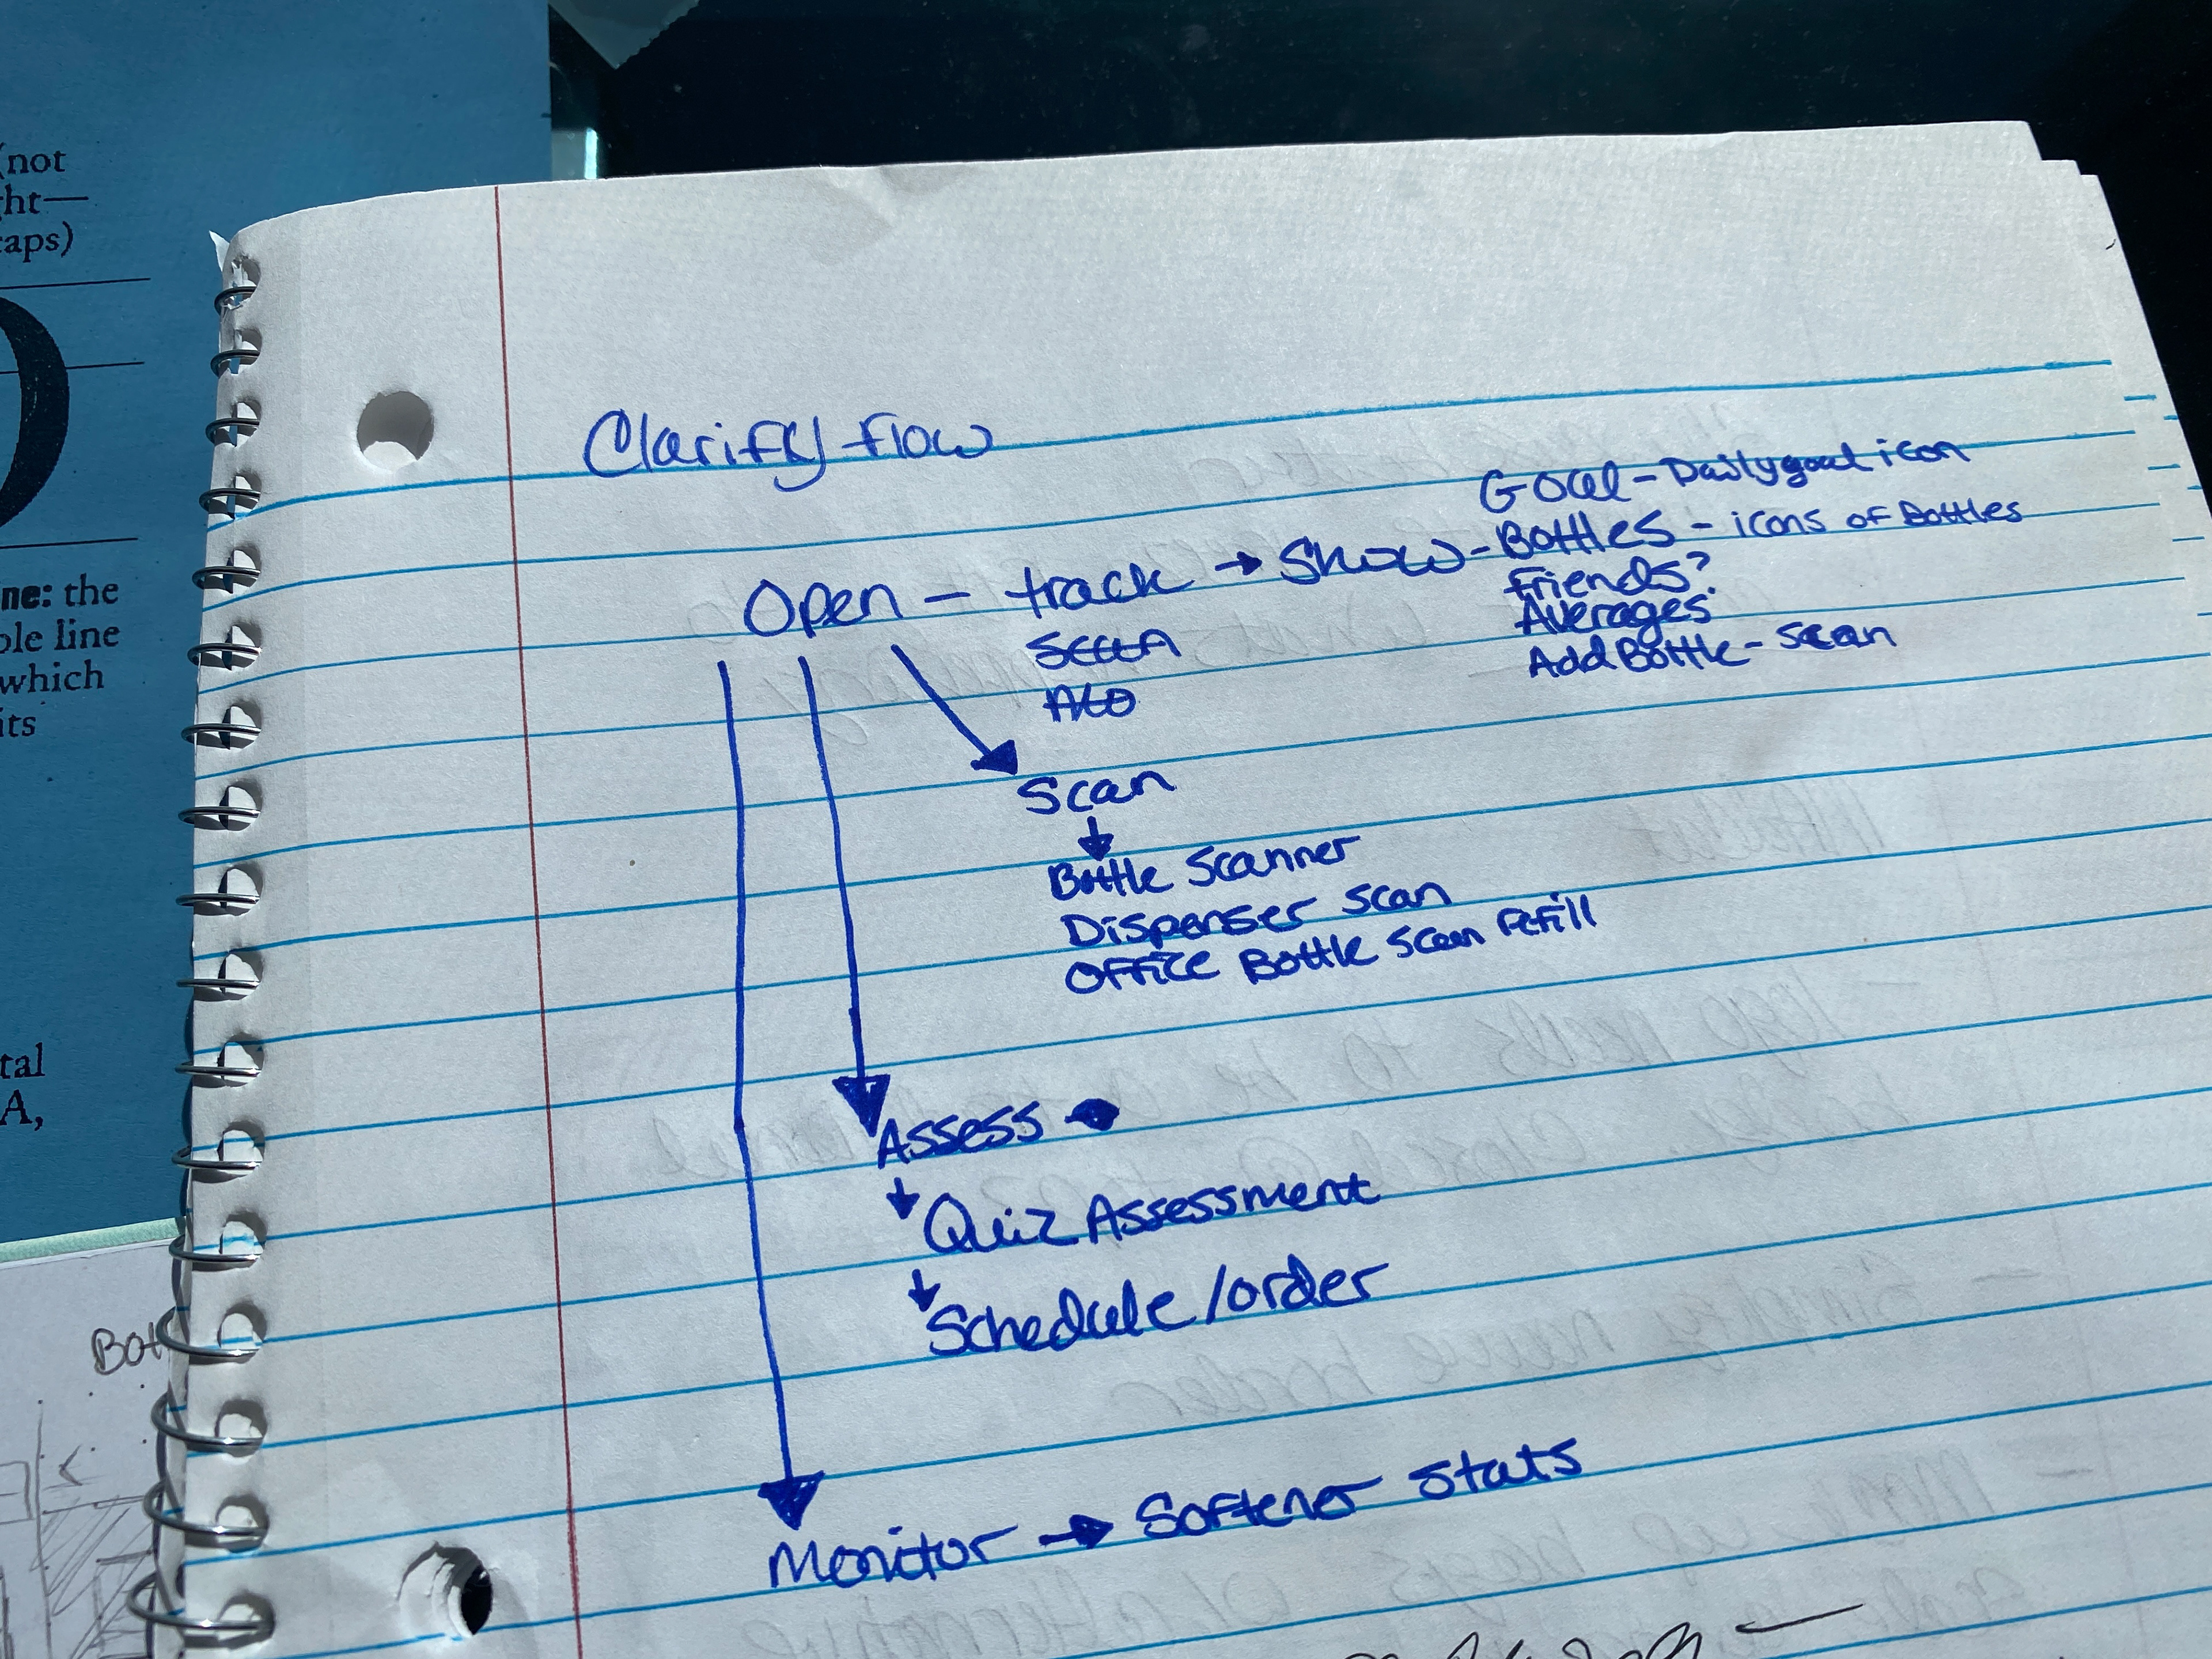 (not
ht—
caps)
ne: the
ole line
which
its
tal
A,
Bot
Clarify flow
Open – track → Show - Goal - Daily goal icon
Bottles - icons of Bottles
friends?
Averages
Add Bottle - scan
Scan
Bottle Scanner
Dispenser scan
Office Bottle scan refill
Assess →
Quiz Assessment
Schedule/order
Monitor → Softener Stats